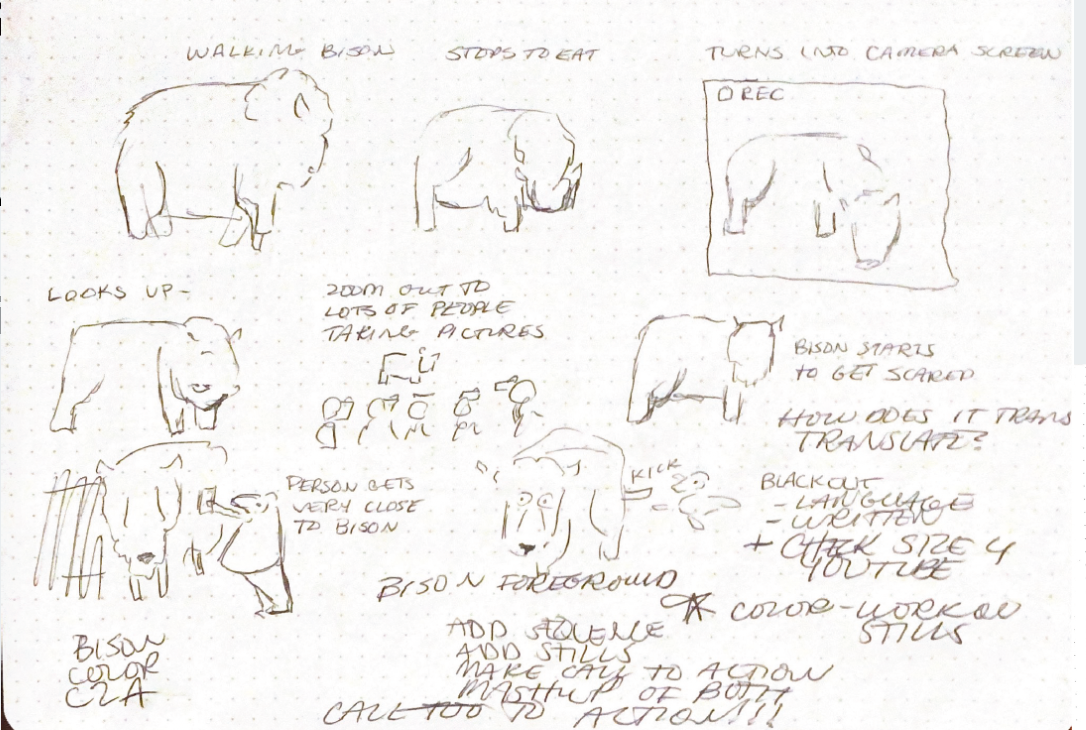 WALKING BISON
STOPS TO EAT
TURNS INTO CAMERA SCREEN
O REC
LOOKS UP-
ZOOM OUT TO
LOTS OF PEOPLE
TAKING PICTURES
BISON STARTS
TO GET SCARED
HOW DOES IT TRANS
TRANSLATE?
PERSON GETS
VERY CLOSE
TO BISON
KICK
BISON FOREGROUND
BLACKOUT
- LANGUAGE
- WRITTEN
+ CHECK SIZE 4
YOUTUBE
COLOR-WORK ON
STILLS
BISON
COLOR
C2A
ADD SQUENCE
ADD STILLS
MAKE CALL TO ACTION
MASHUP OF BOTH
CALL TOO TO ACTION!!!